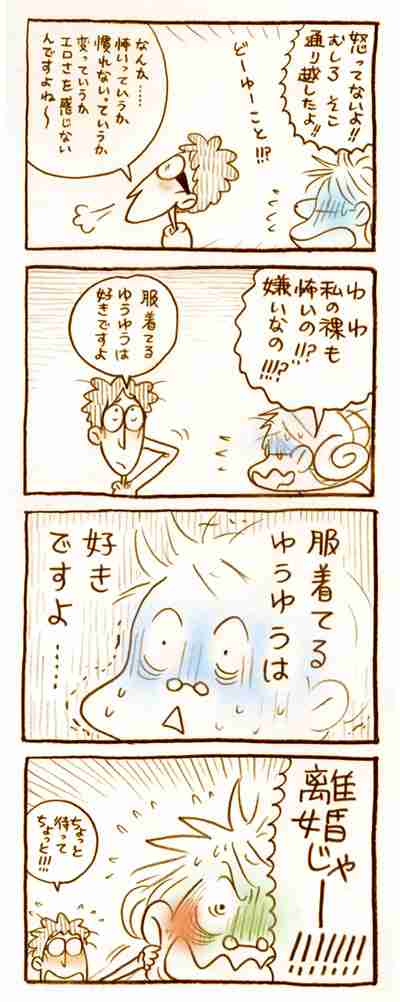 怒ってないよ!!
むしろ そこ
通り越したよ!!
どーゆーこと!!?
なんか……
怖いっていうか
慣れないっていうか
変っていうか
エロさを感じない
んですよね〜
わ わ
私の裸も
怖いの!!?
嫌いなの
!!!?
服着てる
ゆうゆうは
好きですよ
服着てる
ゆうゆうは
好き
ですよ……
離
婚じゃー
!!!!!!!
ちょっと
待って
ちょっと!!!